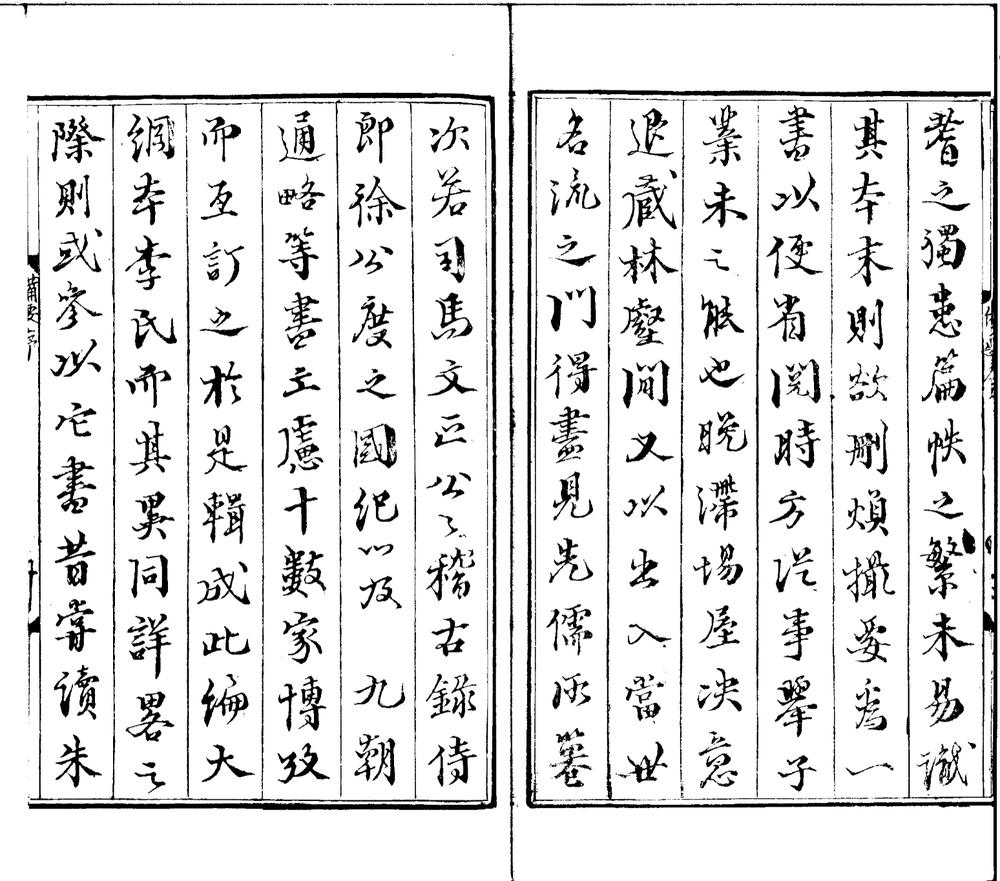 耆之獨患篇帙之繁未易識
其本末則欲刪煩撮要為一
書以便省閱時方從事舉子
業未之能也晚滯場屋決意
退藏林壑間又以出入當世
名流之門得盡見先儒所纂
次若司馬文正公之稽古錄侍
郎徐公度之國紀以及九朝
通略等書亡慮十數家博攷
而互訂之於是輯成此編大
綱本李氏而其異同詳畧之
際則或參以它書昔嘗讀朱
備要序